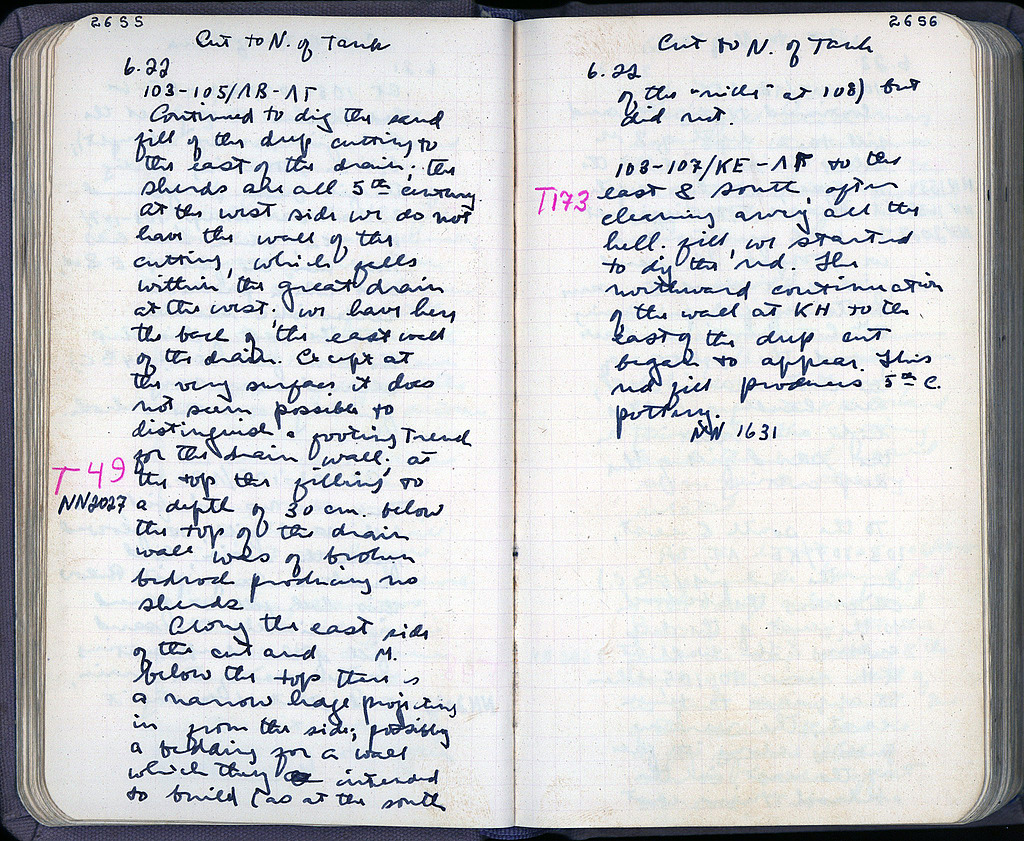 2655
Cut to N. of Tank
6.22
103-105/ΛB-ΛΓ
Continued to dig the sand
fill of the deep cutting to
the east of the drain; the
sherds are all 5th century.
At the west side we do not
have the wall of the
cutting, which falls
within the great drain
at the west; we have here
the back of the east wall
of the drain. Except at
the very surface it does
not seem possible to
distinguish a footing trench
for the drain wall; at
T 49
the top the filling, to
NN2027
a depth of 30 cm. below
the top of the drain
wall was of broken
bedrock producing no
sherds
Along the east side
of the cut and M.
below the top there is
a narrow ledge projecting
in from the side; possibly
a bedding for a wall
which they intended
to build (as at the south
2656
Cut to N. of Tank
6.22
of the "niche" at 108) but
did not.
103-107/KE-ΛΓ to the
T173
east & south after
clearing away all the
hell. fill, we started
to dig the rd. The
northward continuation
of the wall at KH to the
east of the deep cut
began to appear. This
rd fill produces 5th c.
pottery.
NN 1631